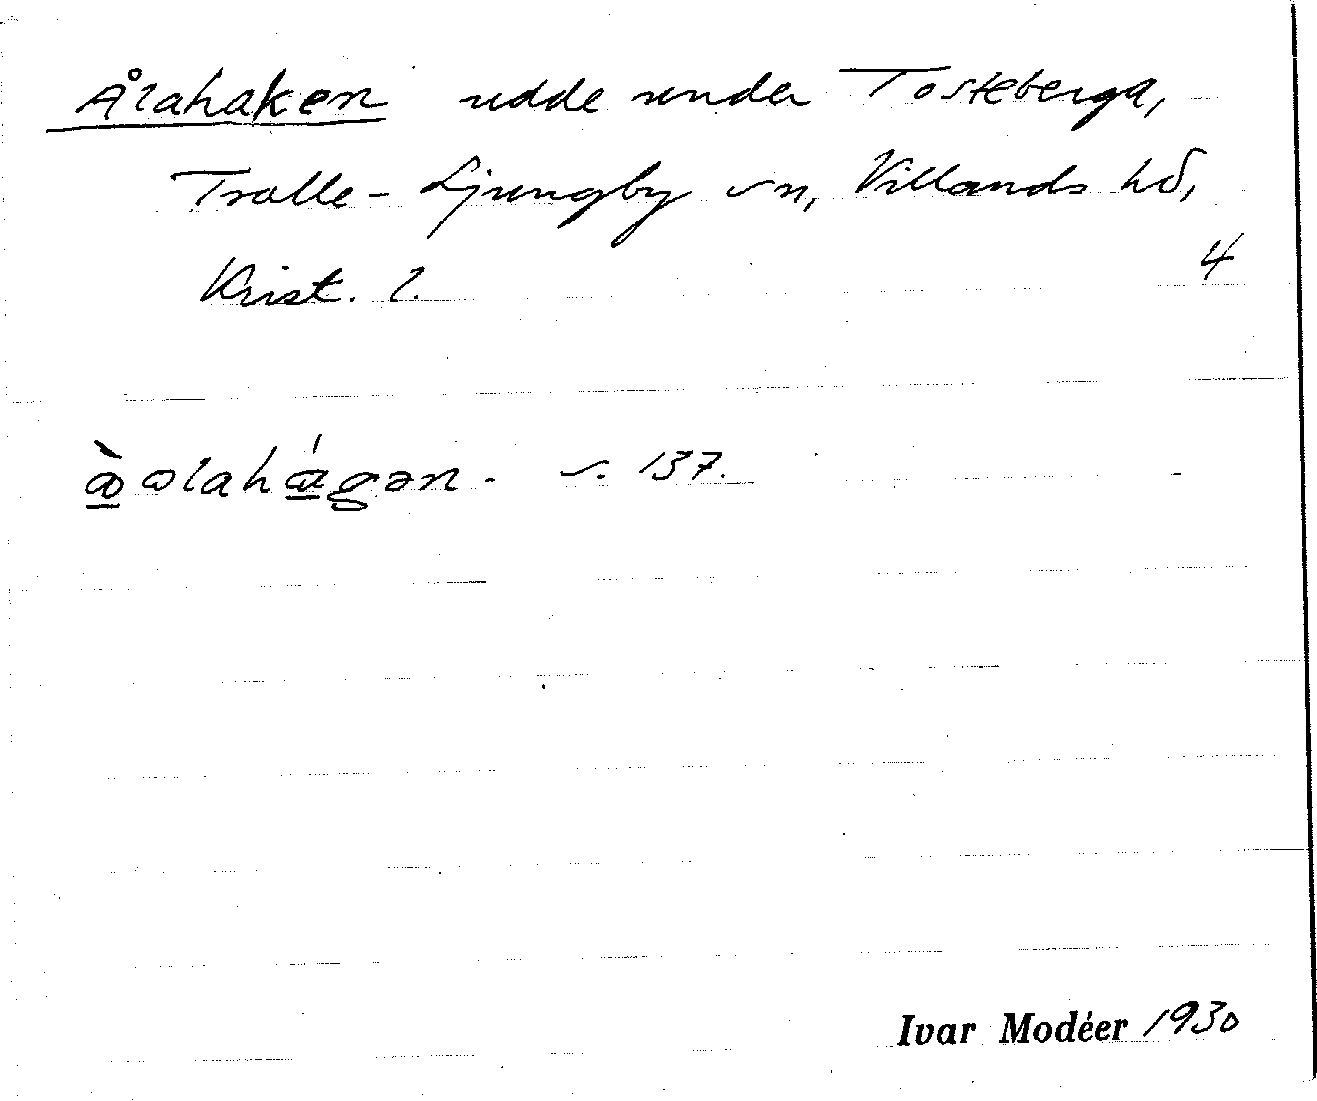 Ålahaken udde under Tosteberga,
Trolle-Ljungby sn, Villands hd,
Krist. l. 4
s. 137.
Ivar Modéer 1930